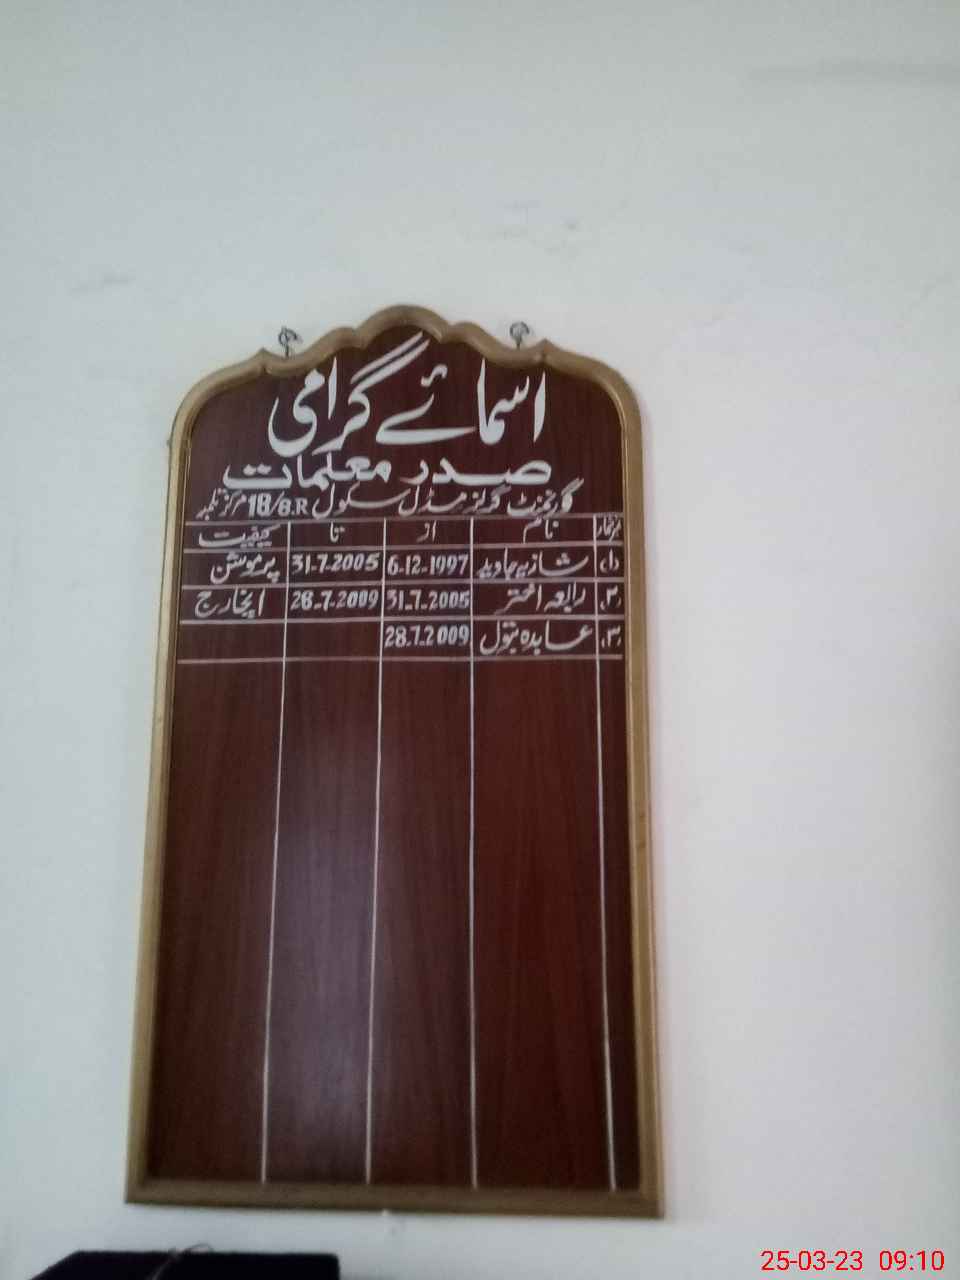 اسمائے گرامی
صدر معلمات
گورنمنٹ گرلز مڈل سکول 18/8.R مرکز تلمبہ
نمبر شمار نام از تا کیفیت
(۱) شازیہ جاوید 6-12-1997 31-7-2005 پرموشن
(۲) رابعہ اختر 31-7-2005 28-7-2009 انچارج
(۳) عابدہ بتول 28.7.2009
25-03-23 09:10